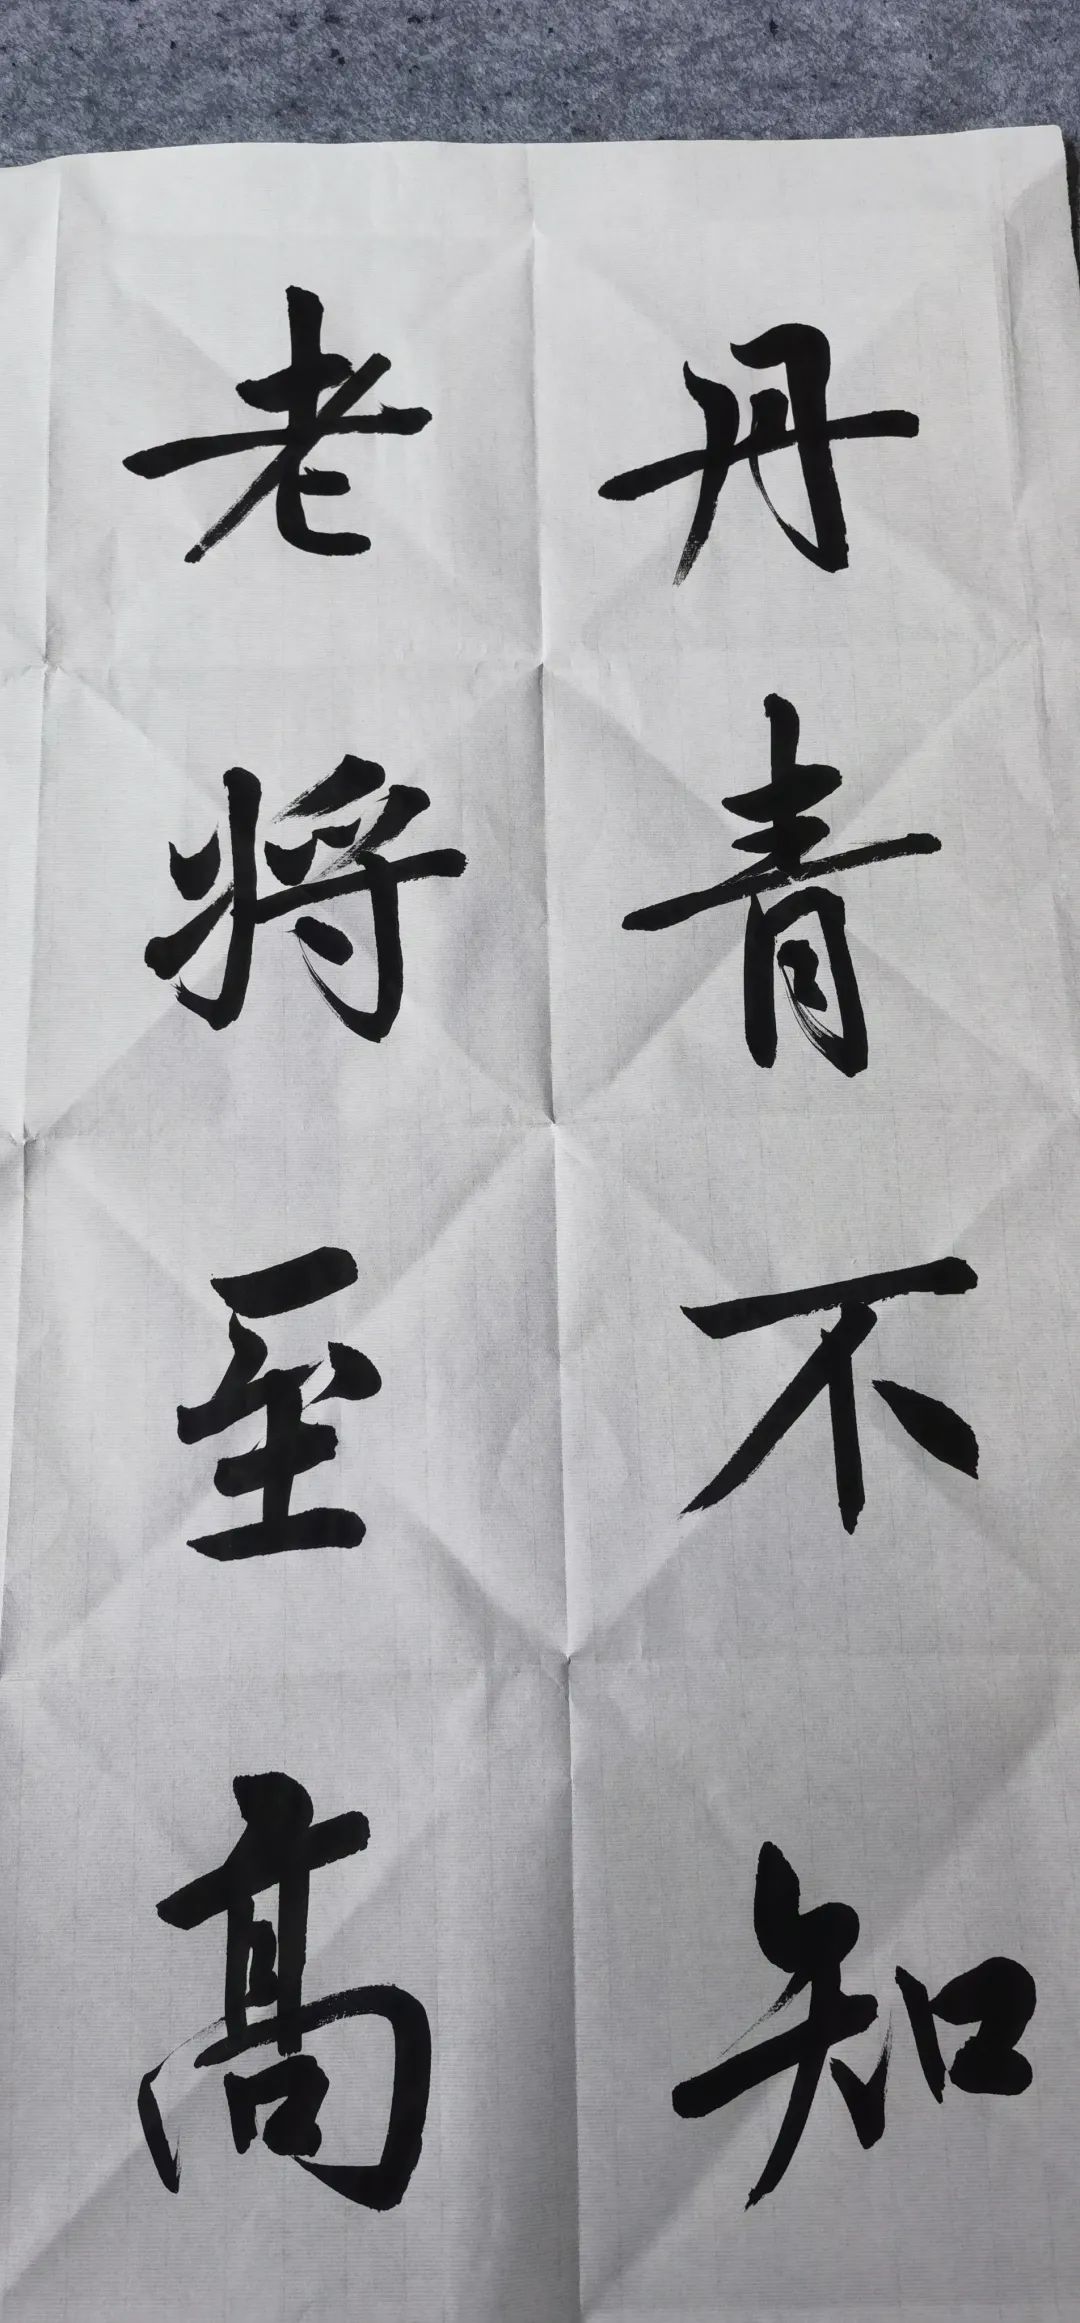 丹青不知
老将至高